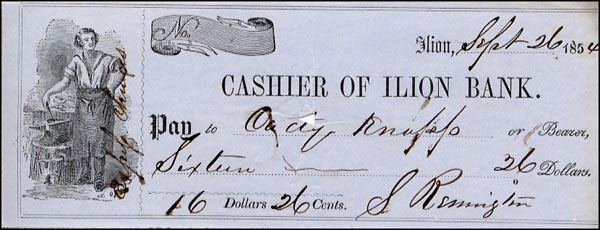 No.
Ilion, Sept 26 1854
CASHIER OF ILION BANK.
Pay to Knapp or Bearer,
Sixteen 26 Dollars.
16 Dollars 26 Cents. S Remington